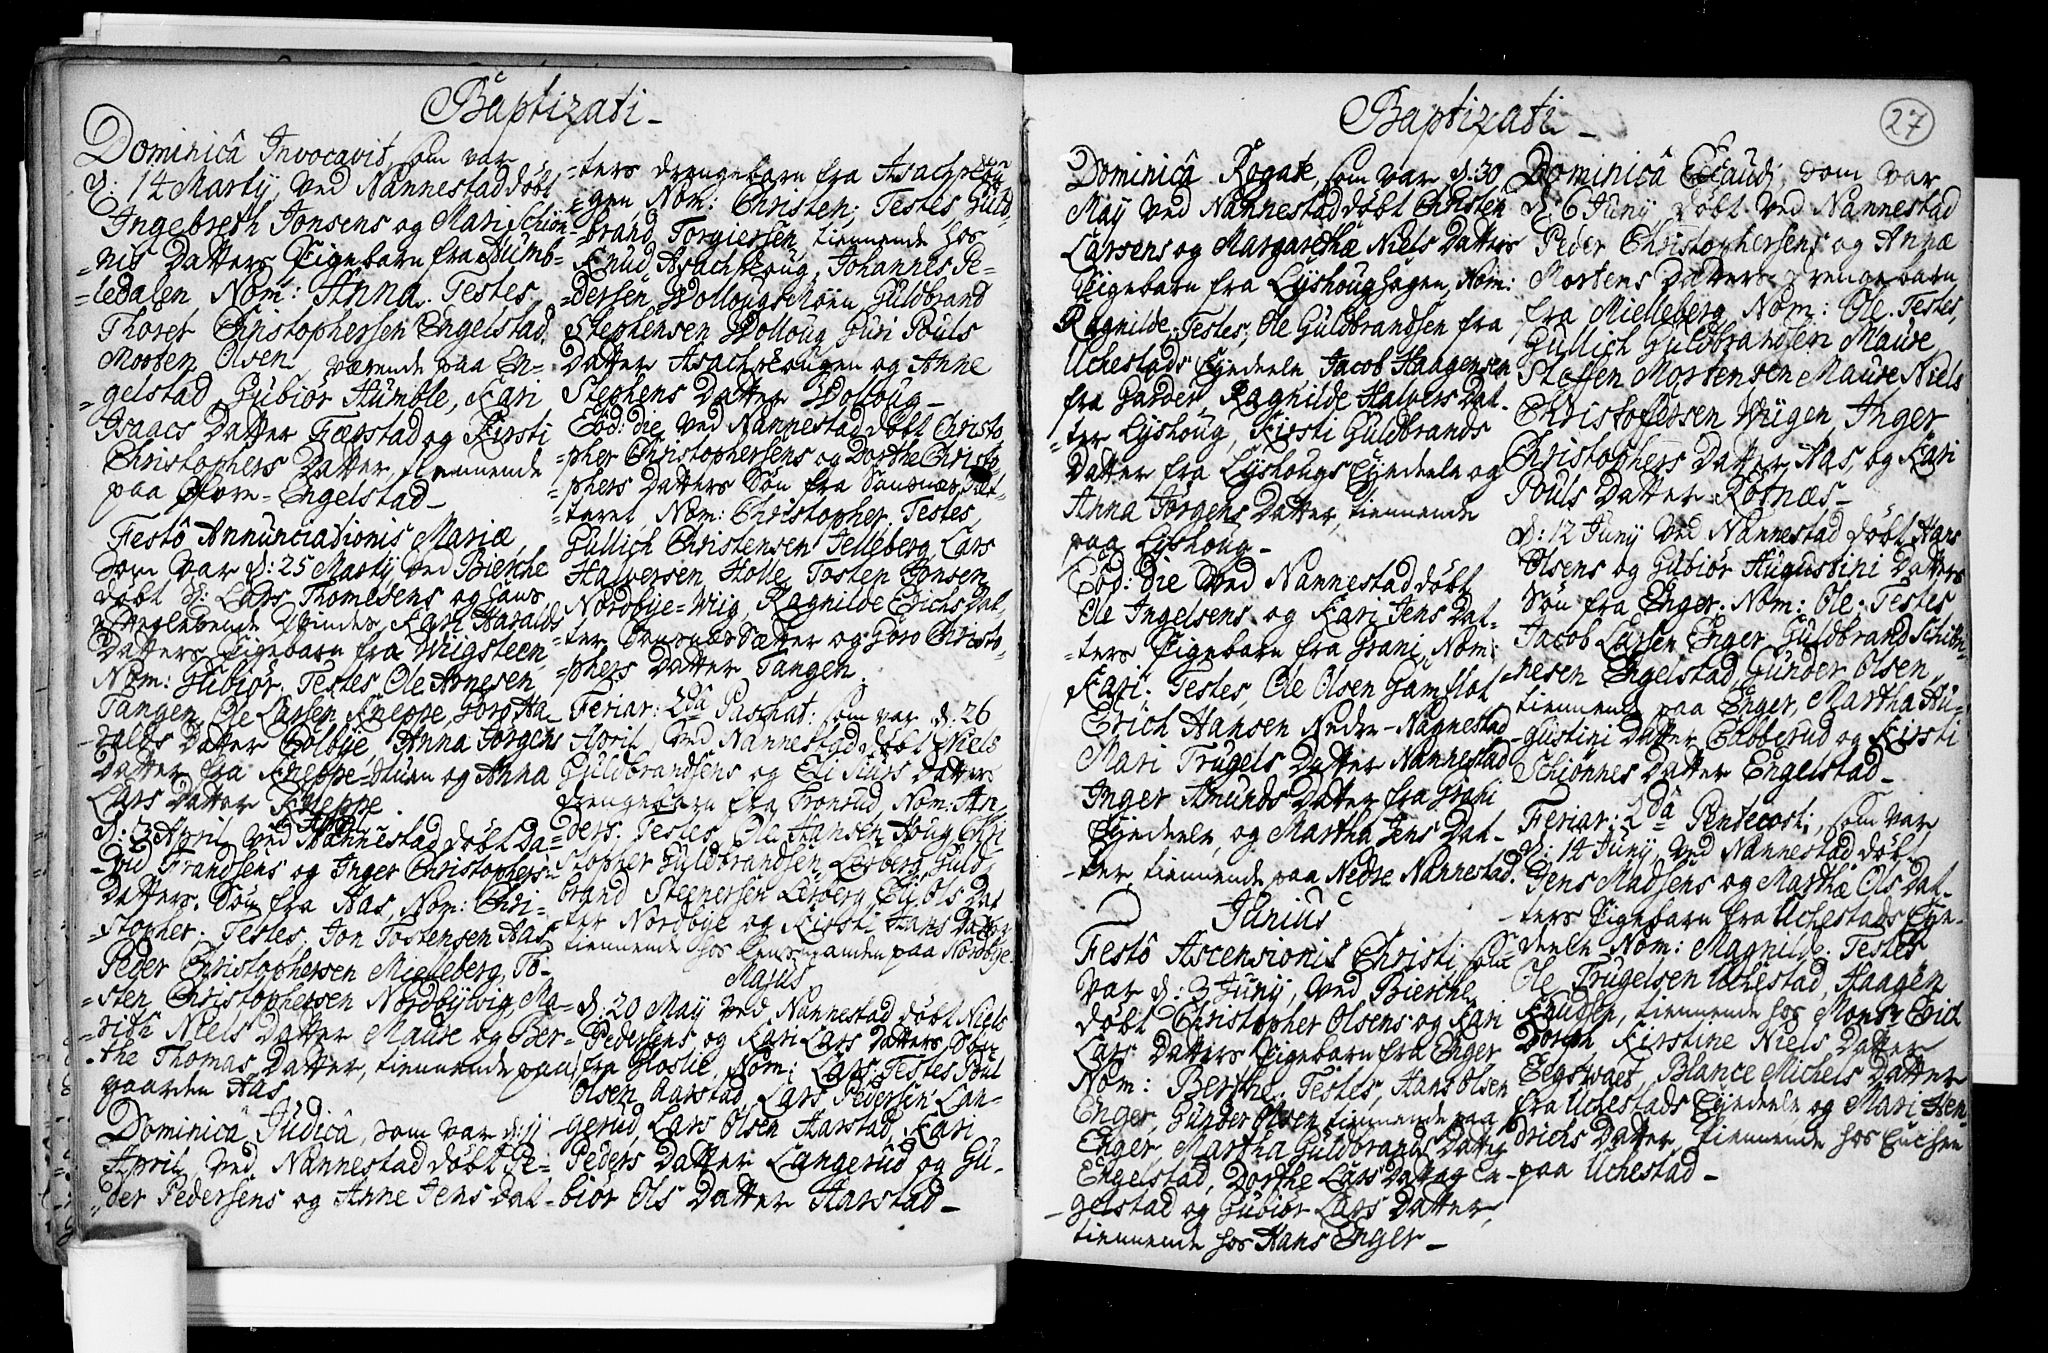 Baptizati
Dominicâ Invocavit, som var
d: 14 Martij, ved Nannestad döbt
Ingebreth Jonsens og Mari Schiön-
=nis Datters Pigebarn fra Humb-
=ledalen Nom: Anna. Testes
Thorer Christophersen Engelstad,
Morten Olsen, værende paa En-
=gelstad, Gubiör Humble, Kari
Isaacs Datter Fægstad og Kirsti
Christophers Datter, tiennende
paa Øfvre-Engelstad
Festô Annunciationis Mariæ,
som var d: 25 Martij ved Bierche
döbt Lars Thomesens og hans
Qvinde, Kari Haralds
Datters Pigebarn fra Wiigsteen,
Nom: Gubiör, Testes Ole Arnesen
Tangen, Ole Larsen Kneppe, Goro Ha-
ralds Datter Colbye, Anna Jörgens
Datter fra Kneppe-stuen og Anna
Lars Datter Kneppe
April
d: 3 April, ved Nannestad döbt Da-
=vid Frandsens og Inger Christophers
Datters Sön fra Aas, Nom: Chri-
=stopher. Testes, Jon Tostensen Aas
Peder Christophersen Mielleberg, To-
=sten Christophersen Nordbÿwig, Ma-
=rithe Niels Datter Maure og Ber-
=the Thomas Datter, tiennende paa
gaarden Aas
Dominica Judica, som var d: 11
April, ved Nannestad döbt Pe-
der Pedersens og Anne Jens Dat-
=ters drengebarn fra Asachschou-
=gen Nom: Christen; Testes, Guld-
=brand Torgiersen, tiennende hos
Knud Asachschoug, Johannes Pe-
=dersen, WollougsMöen, Guldbrand
Stephensen Wolloug, Guri Pouls
Datter Asachschougen og Anne
Stephens Datter Wolloug
Eod: die ved Nannestad döbt Christo
pher Christophersens og Dorthe Christo-
=phers Datters Sön fra Sandnæs Sæt-
=teret, Nom: Christopher. Testes
Gullich Christensen Jelleberg, Lars
Halversen Holle, Tosten Jonsen
Nordbye=Wiig, Ragnilde Erichs Dat-
=ter Sandnæs Sætter og Goro Christo-
=phers Datter Tangen.
Feriar: 2dâ Paschat: som var d: 26
April, ved Nannestad döbt Niels
Guldbrandsens og Eli Siurs Datters
drengebarn fra Tronsrud, Nom: An-
=ders. Testes, Ole Hansen Houg, Chri
stopher Guldbrandsen, Lesberg, Guld-
brand Steenersen Lesberg, Eli Ols Dat
ter Nordbye og Kirsti Hans Datter
tiennende hos paa Nordbye
Majus
d: 20 Maÿ ved Nannestad döbt Niels
Pedersens og Kari Lars Datters Sön
fra Hoslie, Nom: Lars, Testes Poul
Olsen Aarstad, Lars Pedersen Lan-
gerud, Lars Olsen Aarstad, Kari
Peders Datter Langerud og Gu-
biör Ols Datter Aarstad
Baptizati
27
Dominicâ Rogate, som var d: 30
Maÿ ved Nannestad döbt Christen
Larsens og Margarethæ Niels Datters
Pigebarn fra Lyshoug hagen, Nom:
Ragnilde. Testes, Ole Guldbrandsen fra
Uchestads Eyedeele, Jacob Haagensen
fra Gadder, Ragnilde Halvers Dat-
ter Lyshoug, Kirsti Guldbrands
Datter fra Lyshougs Eyedeele og
Anna Jörgens Datter, tiennende
paa Lyshoug
Eod: die ved Nannestad döbt
Ole Ingelsens og Kari Jens Dat-
=ters Pigebarn fra Grani, Nom:
Kari; Testes, Ole Olsen Gamflot
Erich Hansen Nedre-Nannestad
Mari Trugels Datter Nannestad
Inger Amunds Datter fra Grani
Eyedeele, og Martha Jens Dat-
ter, tiennende paa Nedre Nannestad.
Junius
Festô Ascensionis Christi, som
var d: 3 Junÿ, ved Bierche
döbt Christopher Olsens og Kari
Lars Datters Pigebarn fra Enger
Nom: Berthe. Testes, Hans Olsen
Enger, Gunder Olsen tiennende paa
Enger, Martha Guldbrands Datter
Engelstad, Dorthe Lars Datter En-
gelstad og Gubiör Lars Datter,
tiennende hos Hans Enger
Dominicâ Exaudi, som var
d: 6 Junÿ döbt ved Nannestad
Peder Christophersens og Annæ
Mortens Datters drengebarn
fra Mielleberg, Nom: Ole. Testes,
Gullich Guldbrandsen Maure
Steffen Mortensen Maure, Niels
Christofersen Wiigen, Inger
Christophers Datter Aas, og Kari
Pouls Datter Rotnæs
d: 12 Junÿ ved Nannestad döbt Hans
Olsens og Gubiör Augustini Datters
Sön fra Enger. Nom: Ole. Testes
Jacob Larsen Enger, Guldbrand Schiön-
nesen Engelstad, Gunder Olsen
tiennende paa Enger, Martha Au-
gustini Datter Ekkerud og Kirsti
Schiönnes Datter Engelstad
Feriar: 2dâ Pentecost: som var
d: 14 Junÿ ved Nannestad döbt
Jens Madsens og Marthæ Ols Dat-
=ters Pigebarn fra Uchestads Eye-
deele Nom: Magnilde. Testes
Ole Trugelsen Uchestad, Haagen
Knudsen, tiennende hos Monsr Erich
Dorph Kirstine Niels Datter
Eegswaet, Blance Michels Datter
fra Uchestads Eyedeele, og Mari Hen-
drichs Datter, tiennende hos Enchen
paa Uchestad